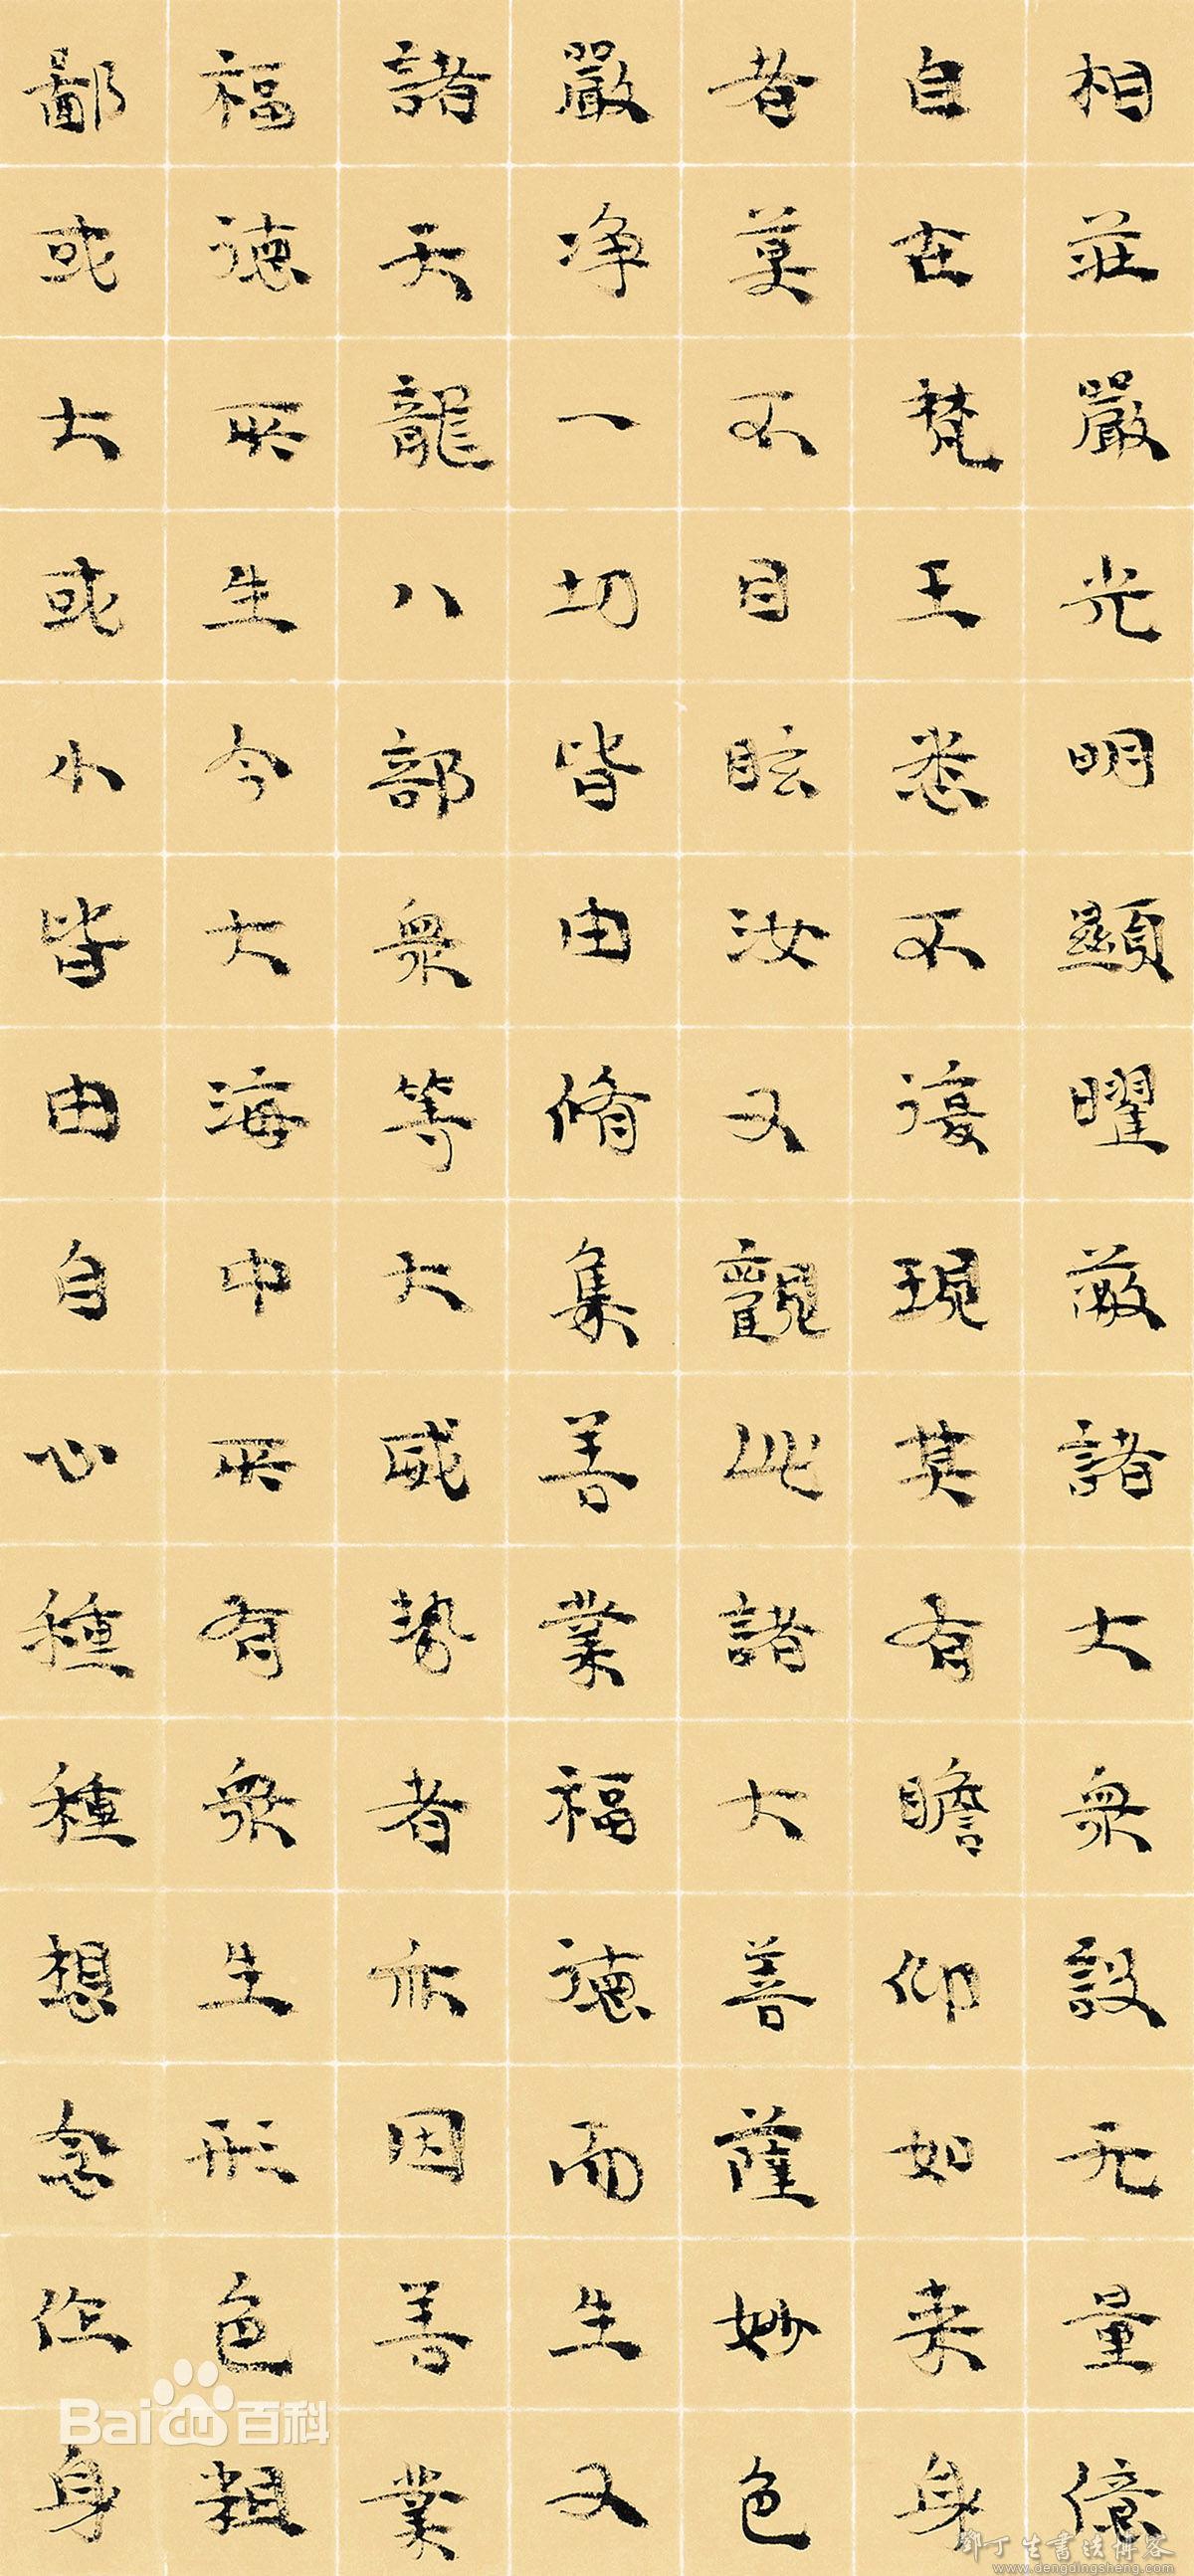 相莊嚴光明顯曜蔽諸大衆設无量億
自在梵王悉不復現其有瞻仰如来身
者莫不目眩汝又觀此諸大善薩妙色
嚴净一切皆由脩集善業福德而生又
諸天龍八部衆等大威勢者亦因善業
福德所生今大海中所有衆生形色粗
鄙或大或小皆由自心種種想念作身
Bai百科
鄧丁生書法博客
www.dengdingsheng.com